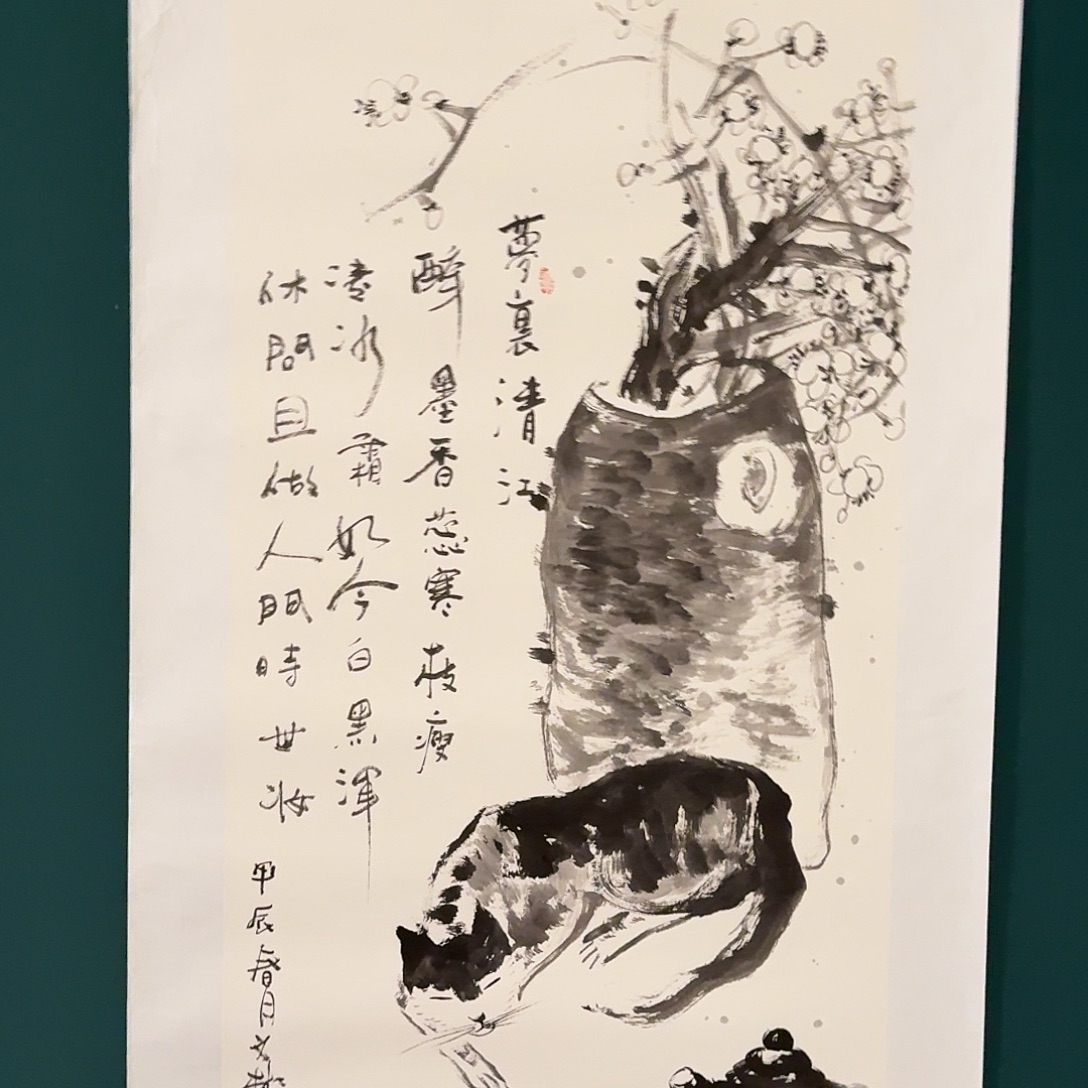 夢裏清江
醉墨香蕊寒枝瘦
凌冰霜如今白黑渾
休問且做人間時世妝
甲辰春月文